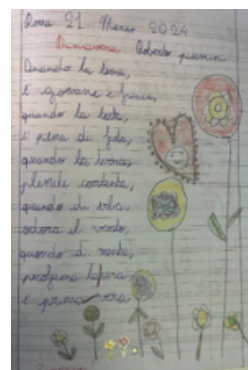 Roma 21 Marzo 2024
Primavera Roberto Piumini
Quando la terra,
è giovane e fresca,
quando la testa,
è piena di festa,
quando la terra,
splende contenta,
quando di erba,
odora il vento,
quando di menta,
profuma la sera
è primavera